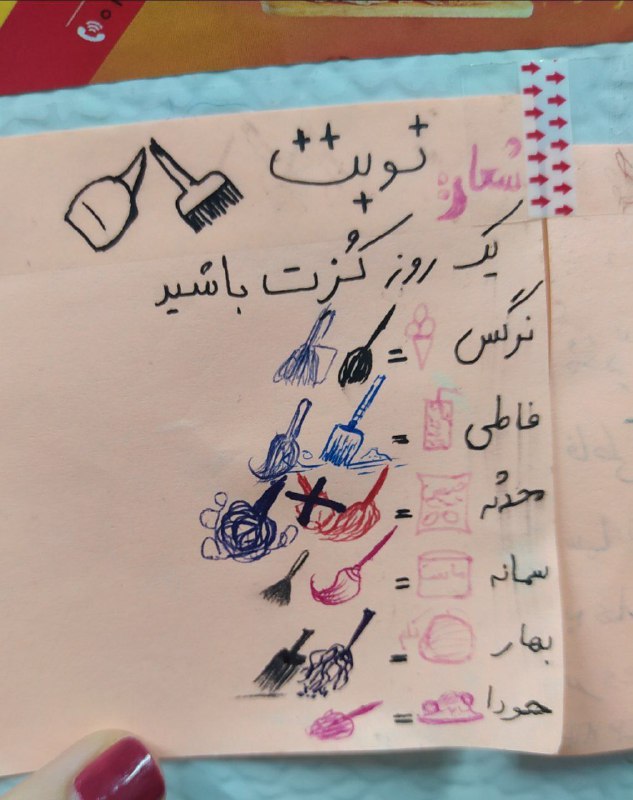 نوبت
شعار:
یک روز کُزت باشید
نرگس =
فاطی =
محدثه =
سمانه =
بهار =
هودا =